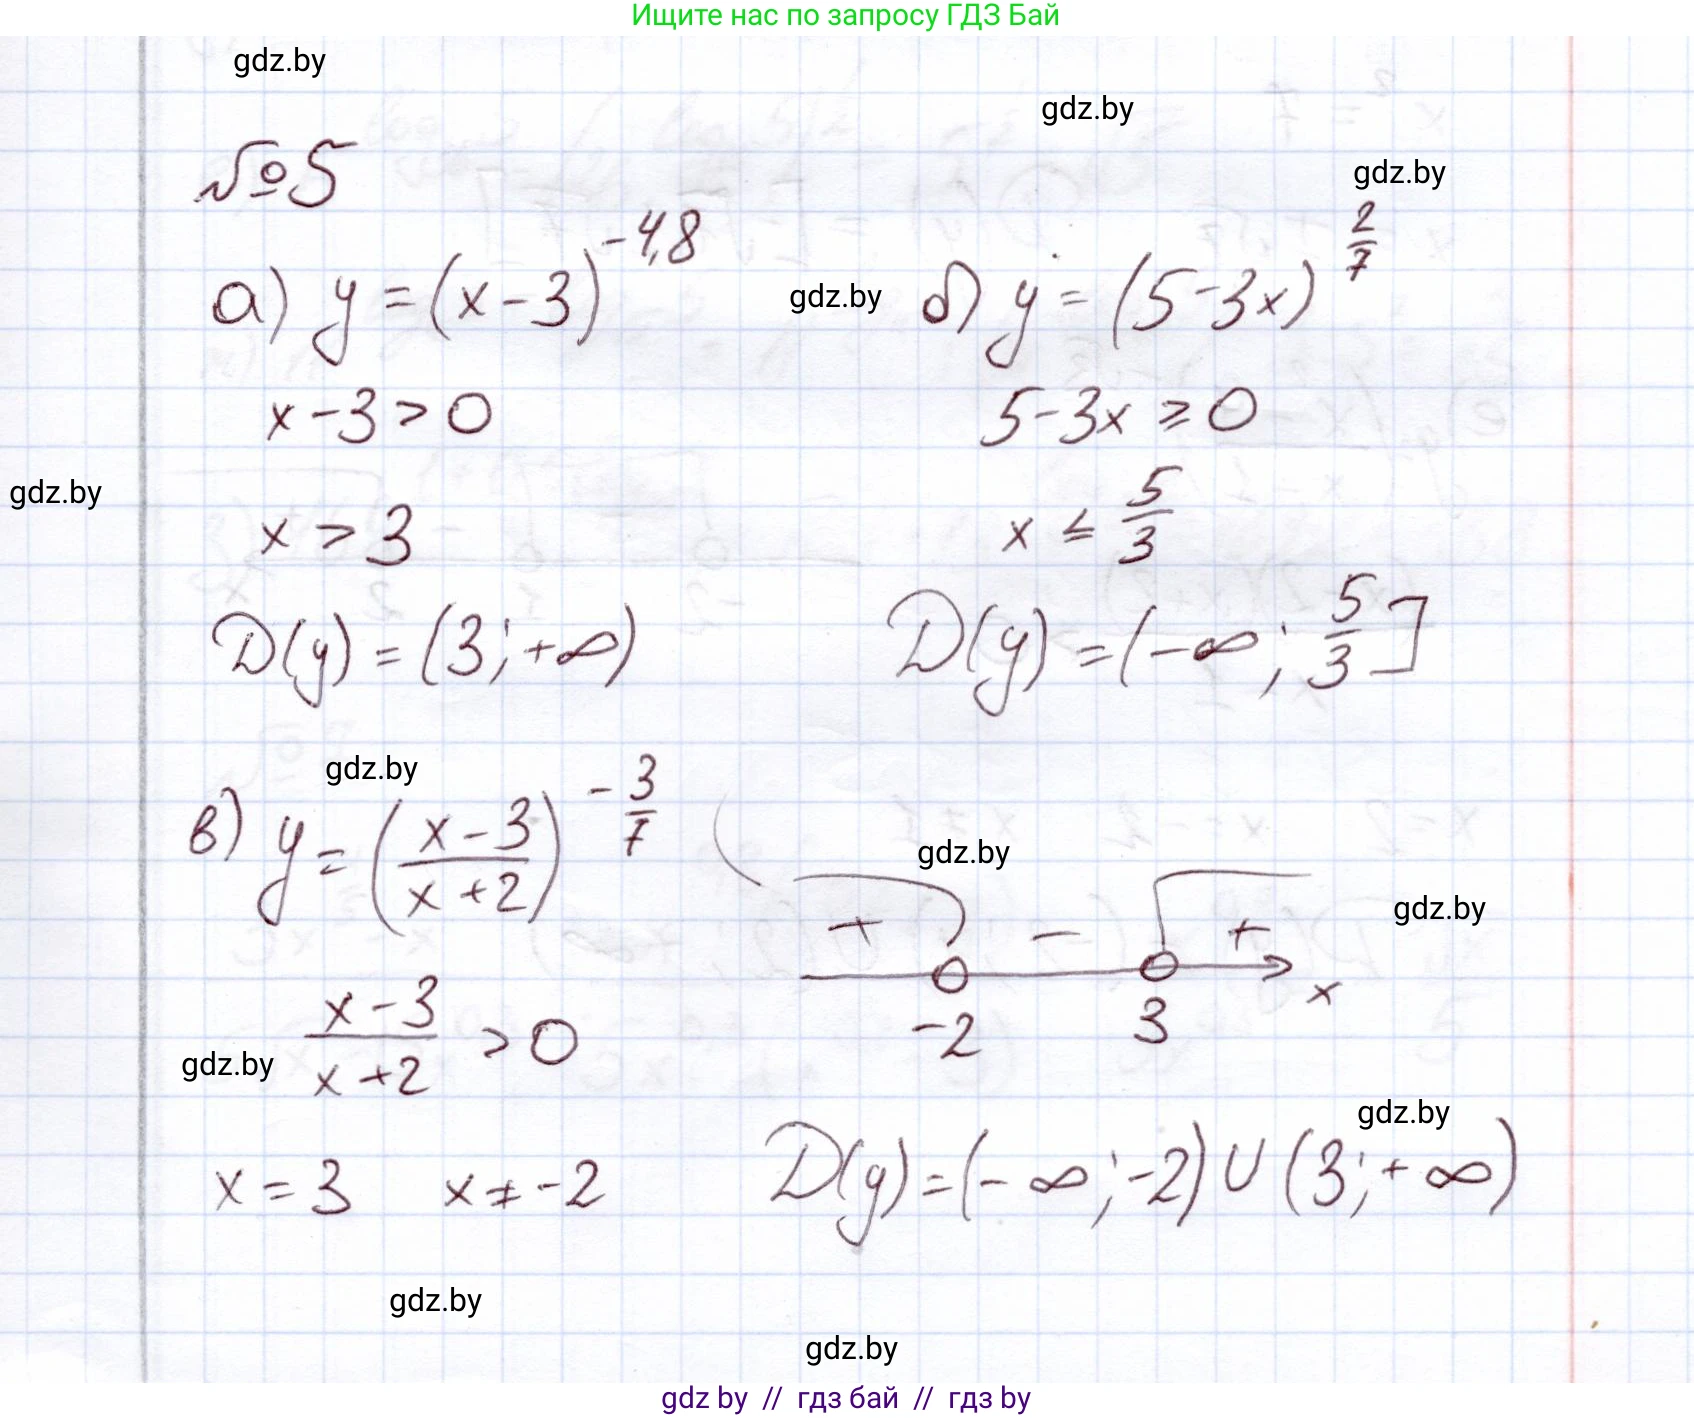 Ищите нас по запросу ГДЗ Бай
gdz.by
gdz.by
№5
gdz.by
а) y = (x - 3)^{-4,8}
gdz.by
б) y = (5 - 3x)^{2/7}
x - 3 > 0
5 - 3x ≥ 0
gdz.by
x > 3
x ≤ 5/3
D(y) = (3; +∞)
D(y) = (-∞; 5/3]
gdz.by
в) y = ((x - 3)/(x + 2))^{-3/7}
gdz.by
gdz.by
+ - +
-2 3 x
(x - 3)/(x + 2) > 0
gdz.by
gdz.by
x = 3 x ≠ -2
D(y) = (-∞; -2) ∪ (3; +∞)
gdz.by
gdz.by
gdz by // гдз бай // гдз by